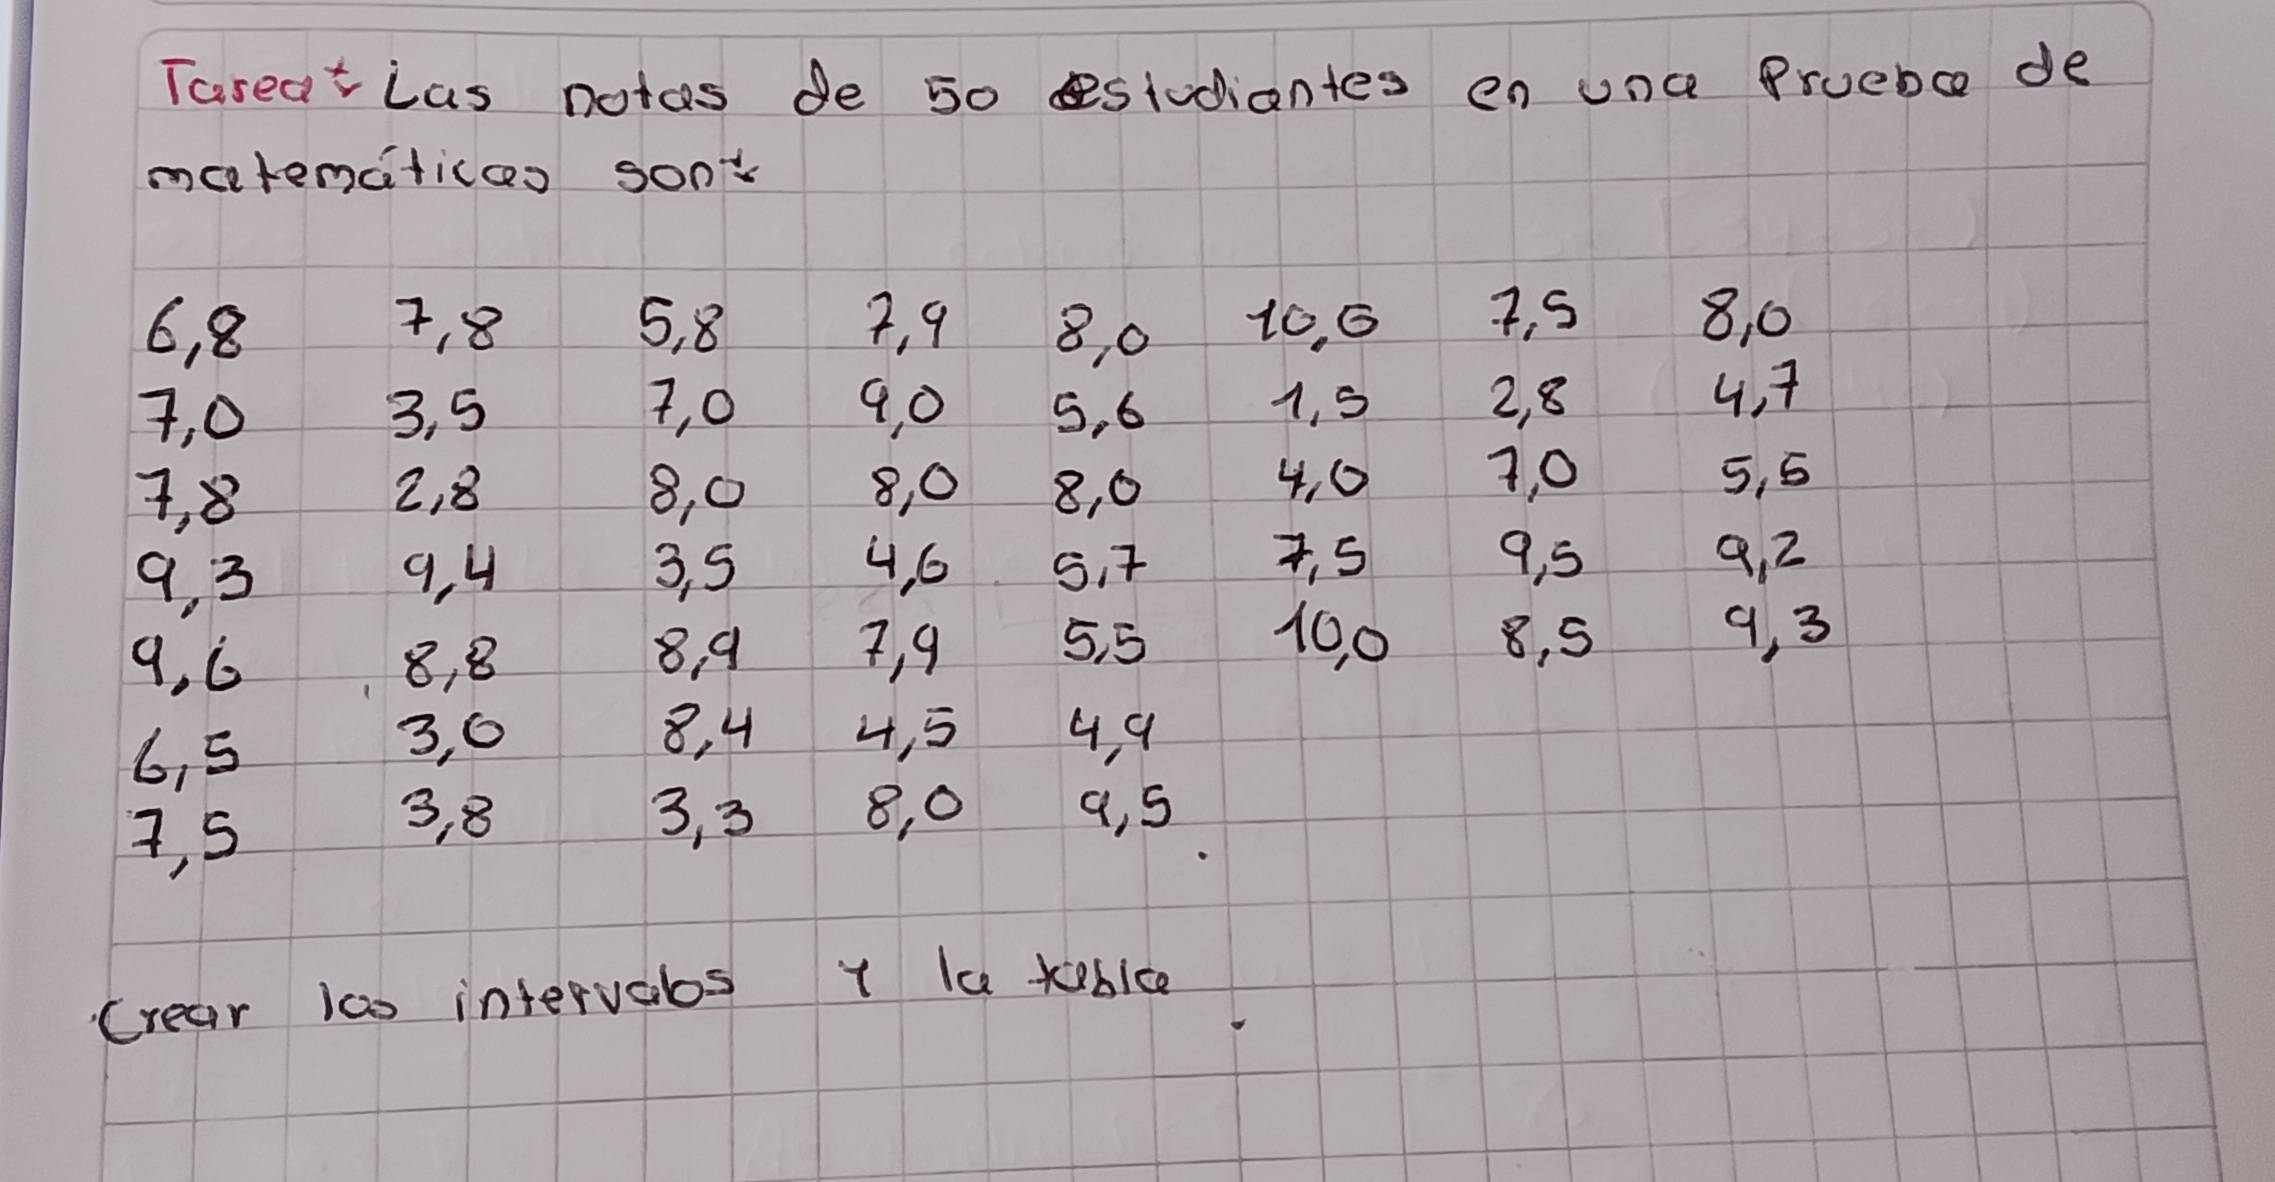 Tarea: Las notas de 50 estudiantes en una Prueba de
matemáticas son:
6,8 7,8 5,8 7,9 8,0 10,0 7,5 8,0
7,0 3,5 7,0 9,0 5,6 1,5 2,8 4,7
7,8 2,8 8,0 8,0 8,0 4,0 7,0 5,5
9,3 9,4 3,5 4,6 5,7 7,5 9,5 9,2
9,6 8,8 8,9 7,9 5,5 10,0 8,5 9,3
6,5 3,0 8,4 4,5 4,9
7,5 3,8 3,3 8,0 9,5.
Crear los intervalos y la tabla.